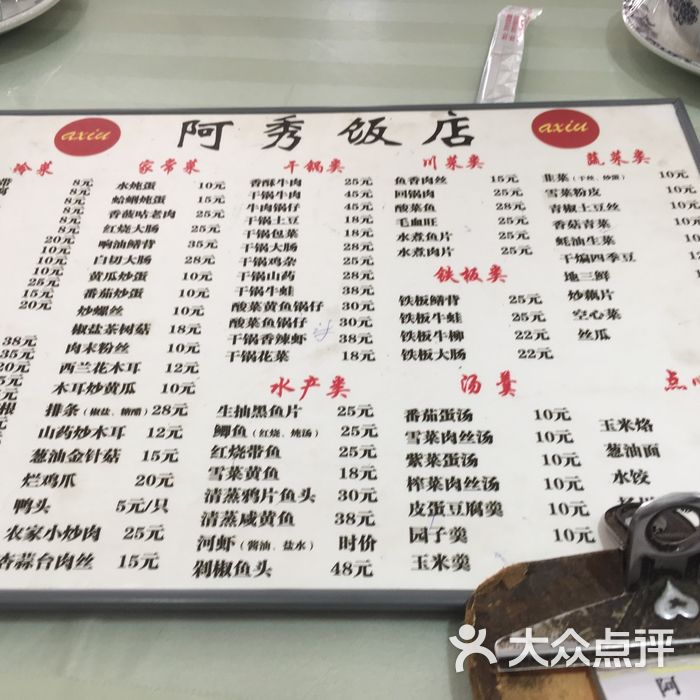 axiu 阿秀饭店 axiu
冷菜
8元
8元
8元
8元
20元
10元
10元
25元
15元
20元
38元
35元
20元
家常菜
水炖蛋 10元
蛤蜊炖蛋 15元
香菇咕老肉 25元
红烧大肠 25元
响油鳝背 35元
白切大肠 28元
黄瓜炒蛋 10元
番茄炒蛋 10元
炒螺丝 10元
椒盐茶树菇 18元
肉末粉丝 10元
西兰花木耳 12元
木耳炒黄瓜 10元
排条（椒盐、糖醋）28元
山药炒木耳 12元
葱油金针菇 15元
烂鸡爪 20元
鸭头 5元/只
农家小炒肉 25元
杏蒜台肉丝 15元
干锅类
香酥牛肉 25元
干锅牛肉 45元
牛肉锅仔 45元
干锅土豆 18元
干锅包菜 18元
干锅大肠 28元
干锅鸡杂 25元
干锅山药 28元
干锅牛蛙 38元
酸菜黄鱼锅仔 30元
酸菜鱼锅仔 30元
干锅香辣虾 38元
干锅花菜 18元
水产类
生抽黑鱼片 25元
鲫鱼（红烧、炖汤） 25元
红烧带鱼 25元
雪菜黄鱼 18元
清蒸鸦片鱼头 30元
清蒸咸黄鱼 38元
河虾（酱油、盐水） 时价
剁椒鱼头 48元
川菜类
鱼香肉丝 15元
回锅肉 25元
酸菜鱼 28元
毛血旺 25元
水煮鱼片 25元
水煮肉片 25元
铁板类
铁板鳝背 25元
铁板牛蛙 25元
铁板牛柳 22元
铁板大肠 22元
汤羹
番茄蛋汤 10元
雪菜肉丝汤 10元
紫菜蛋汤 10元
榨菜肉丝汤 10元
皮蛋豆腐羹 10元
园子羹 10元
玉米羹
蔬菜类
韭菜（干丝、炒蛋） 10元
雪菜粉皮 10元
青椒土豆丝 10元
香菇青菜 10元
蚝油生菜 10元
干煸四季豆
地三鲜
炒藕片
空心菜
丝瓜
点
玉米烙
葱油面
水饺
阿
大众点评